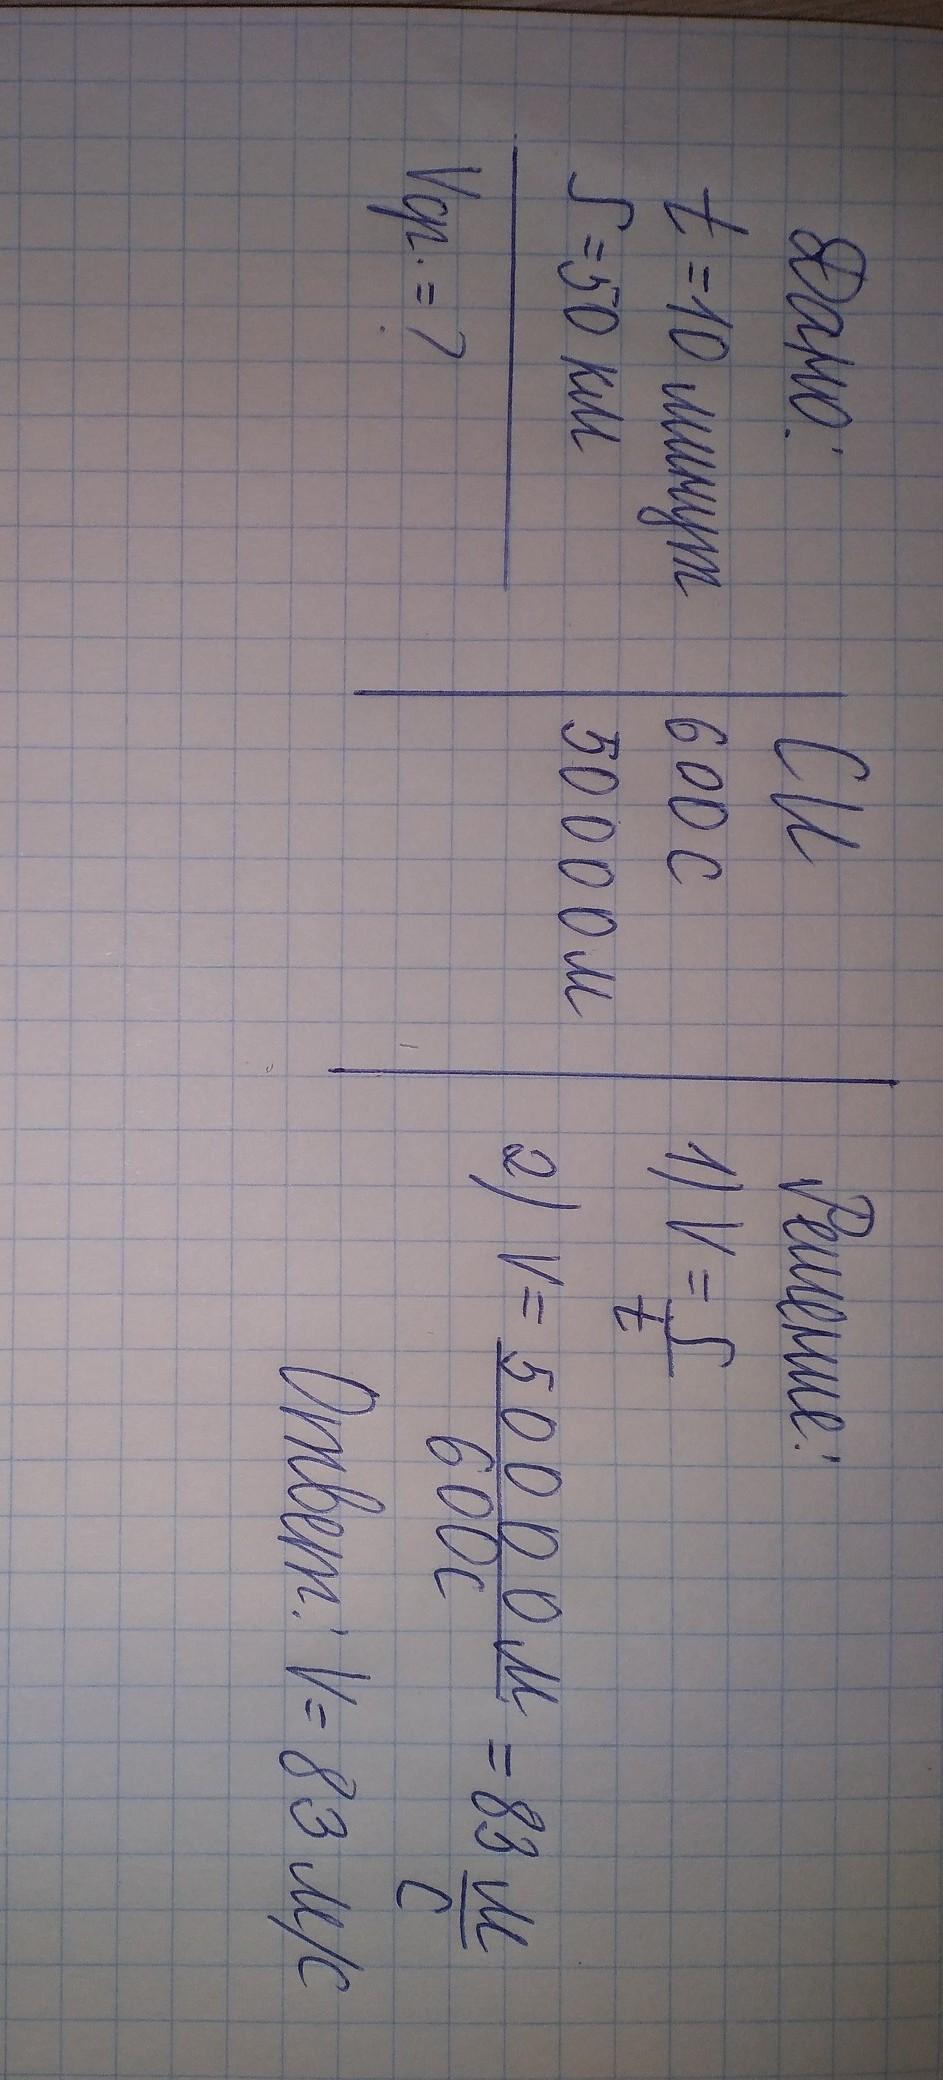 Дано:
t = 10 минут
S = 50 км
Vср. = ?
СИ
600 с
50000 м
Решение:
1) V = S/t
2) V = 50000м/600с = 83 м/с
Ответ: V = 83 м/с